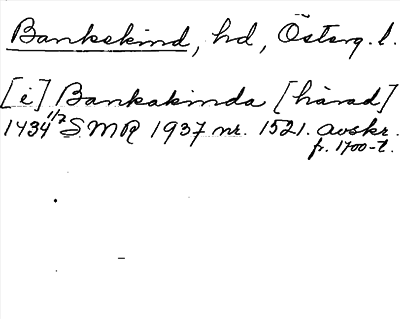 Bankekind, hd, Österg.l.
[i] Bankakinda [härad]
1434 1/2 SMR 1937 nr. 1521. avskr.
fr. 1700-t.